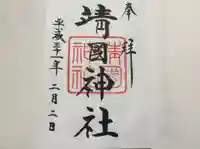 奉拝
靖國神社
靖國
神社
平成三十一年二月二日